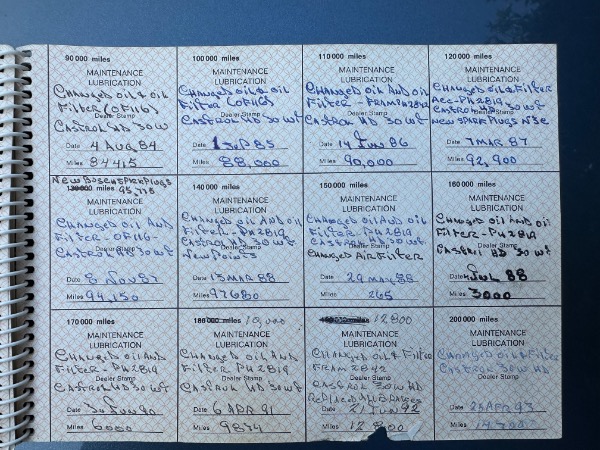 90 000 miles
MAINTENANCE
LUBRICATION
Changed oil & oil
Filter (OF116)
Dealer Stamp
Castrol HD 30 wt
Date 4 Aug 84
Miles 84415
100 000 miles
MAINTENANCE
LUBRICATION
Changed oil & oil
Filter (OF116)
Dealer Stamp
Castrol HD 30 wt
Date 1 Sep 85
Miles 88,000
110 000 miles
MAINTENANCE
LUBRICATION
Changed oil and oil
Filter - Fram PH2819
Dealer Stamp
Castrol HD 30 wt
Date 14 Jun 86
Miles 90,000
120 000 miles
MAINTENANCE
LUBRICATION
Changed oil & Filter
Acc - PH2819
Dealer Stamp
Castrol HD 30 wt
New spark plugs
Date 7 Mar 87
Miles 92,900
New Bosch spark plugs
95,778
130 000 miles
MAINTENANCE
LUBRICATION
Changed oil and
Filter - OF116
Dealer Stamp
Castrol HD 30 wt
Date 8 Nov 87
Miles 94,150
140 000 miles
MAINTENANCE
LUBRICATION
Changed oil and oil
Filter - PH2819
Castrol HD 30 wt
Dealer Stamp
New Points
Date 13 Mar 88
Miles 97680
150 000 miles
MAINTENANCE
LUBRICATION
Changed oil and oil
Filter - PH2819
Castrol HD 30 wt
Dealer Stamp
Changed air filter
Date 29 May 88
Miles 265
160 000 miles
MAINTENANCE
LUBRICATION
Changed oil and oil
Filter - PH2819
Dealer Stamp
Castrol HD 30 wt
Date Jul 88
Miles 3000
170 000 miles
MAINTENANCE
LUBRICATION
Changed oil and
Filter - PH2819
Dealer Stamp
Castrol HD 30 wt
Date 30 Jun 90
Miles 6000
180 000 miles 10,000
MAINTENANCE
LUBRICATION
Changed oil and
Filter PH2819
Dealer Stamp
Castrol HD 30 wt
Date 6 Apr 91
Miles 9874
miles 12,800
MAINTENANCE
LUBRICATION
Changed oil & Filter
Fram 2842
Dealer Stamp
Castrol 30W HD
Replaced
Date 21 Jun 92
Miles 12,800
200 000 miles
MAINTENANCE
LUBRICATION
Changed oil & Filter
Castrol 30W HD
Dealer Stamp
Date 25 Apr 93
Miles